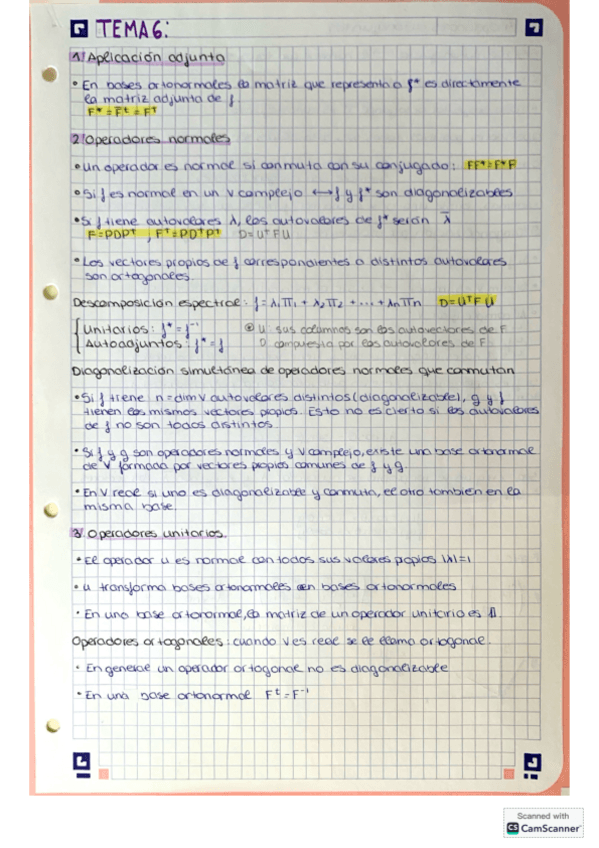 TEMA 6:
1. Aplicación adjunta
• En bases ortonormales la matriz que representa a f* es directamente
la matriz adjunta de f.
F* = F̄ᵗ = F†
2. Operadores normales
• Un operador es normal si conmuta con su conjugado: FF* = F*F
• Si f es normal en un V complejo ⟷ f y f* son diagonalizables
• Si f tiene autovalores λ, los autovalores de f* serán λ̄
F = PDP† , F† = PD†P† D = U†FU
• Los vectores propios de f correspondientes a distintos autovalores
son ortogonales.
Descomposición espectral: f = λ₁Π₁ + λ₂Π₂ + ... + λnΠn D = U†FU
{ Unitarios: f* = f⁻¹ U: sus columnas son los autovectores de F
Autoadjuntos: f* = f D compuesta por los autovalores de F
Diagonalización simultánea de operadores normales que conmutan
• Si f tiene n = dimV autovalores distintos (diagonalizable), g y f
tienen los mismos vectores propios. Esto no es cierto si los autovalores
de f no son todos distintos.
• Si f y g son operadores normales y V complejo, existe una base ortonormal
de V formada por vectores propios comunes de f y g.
• En V real si uno es diagonalizable y conmuta, el otro también en la
misma base.
3. Operadores unitarios.
• El operador u es normal con todos sus valores propios |λ|=1
• u transforma bases ortonormales en bases ortonormales
• En una base ortonormal, la matriz de un operador unitario es 𝟙.
Operadores ortogonales: cuando V es real se le llama ortogonal.
• En general un operador ortogonal no es diagonalizable
• En una base ortonormal Fᵗ = F⁻¹
Scanned with
CS CamScanner